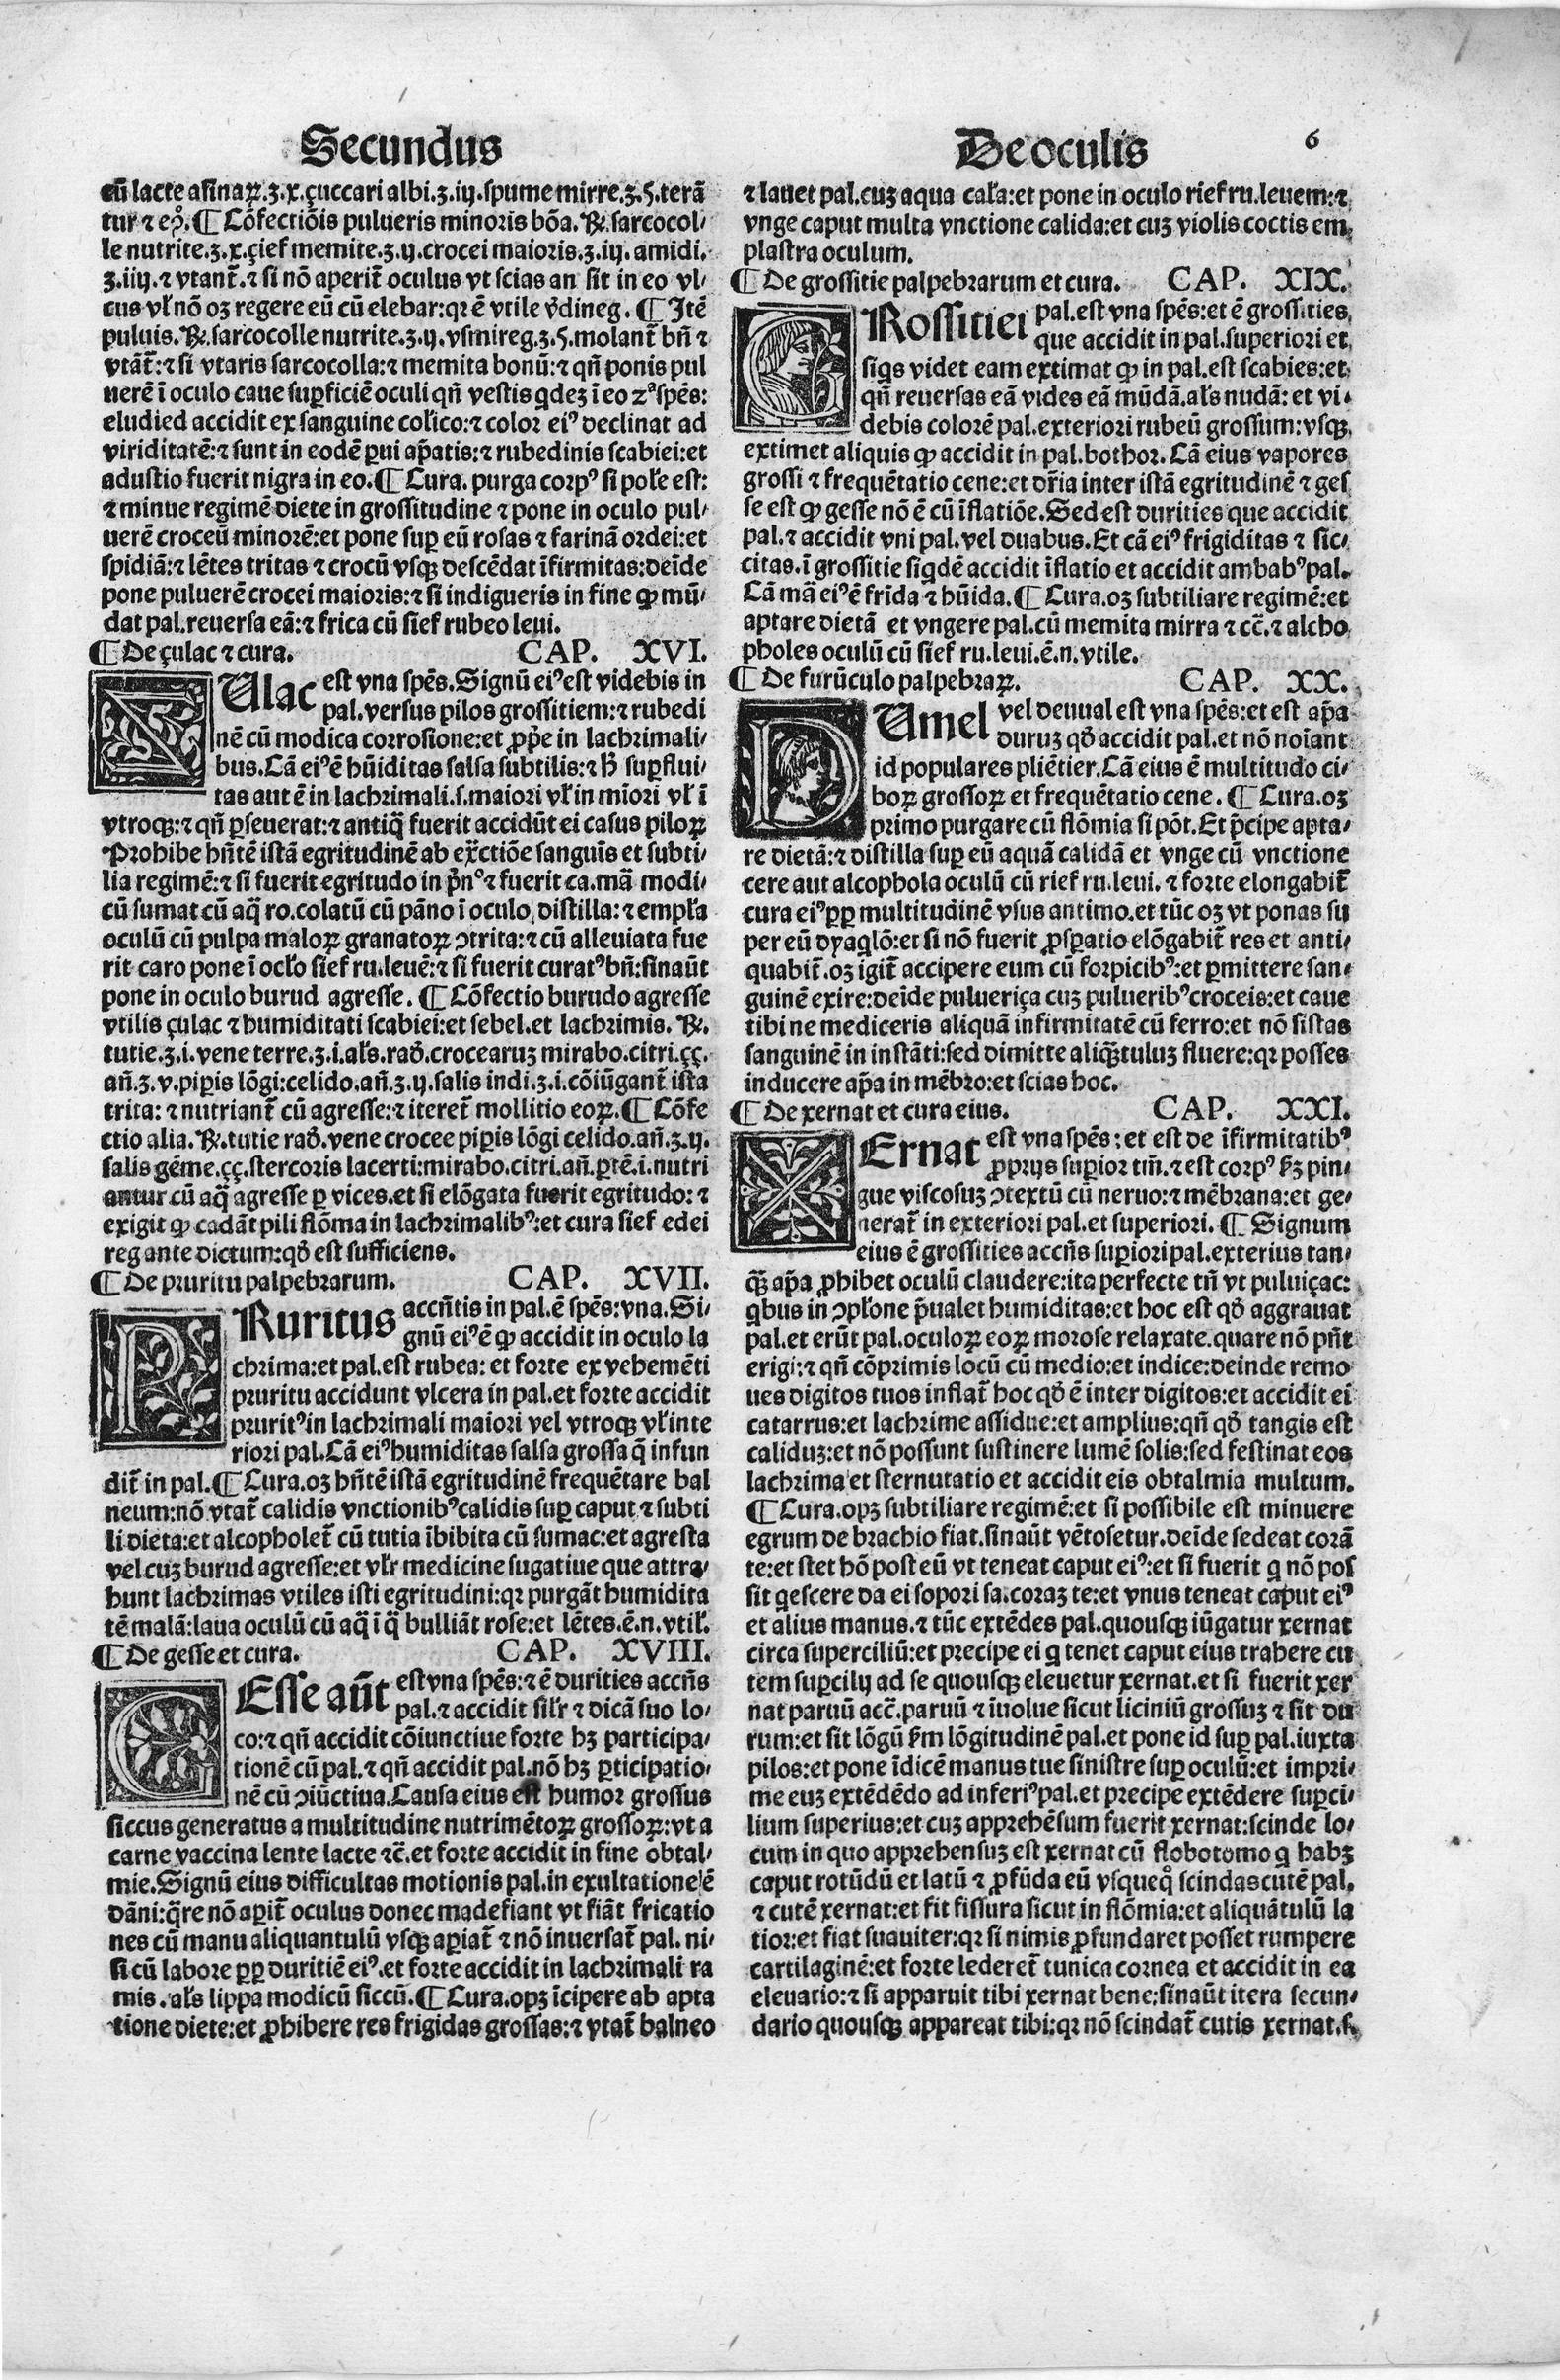 Secundus
De oculis
6
cū lacte asinaꝝ.ʒ.x.çuccari albi.ʒ.iij.spume mirre.ʒ.5.terā
tur ⁊ . ¶ Cōfectiōis pulueris minoris bōa. ℞. sarcocol-
le nutrite.ʒ.x.çief memite.ʒ.ij.crocei maioris.ʒ.iij. amidi.
ʒ.iiij.⁊ vtant̄.⁊ si nō aperit̄ oculus vt scias an sit in eo vl-
cus vł nō oꝫ regere eū cū elebar:qꝛ ē vtile v̄dineg. ¶ Itē
puluis. ℞. sarcocolle nutrite.ʒ.ij.vsmireg.ʒ.5.molant̄ bn̄ ⁊
vtāt̄:⁊ si vtaris sarcocolla:⁊ memita bonū:⁊ qn̄ ponis pul
uerē ī oculo caue sup̲ficiē oculi qn̄ vestis qdeꝫ ī eo 2ᵃ spēs:
eludied accidit ex sanguine colico:⁊ color eiꝰ declinat ad
viriditatē:⁊ sunt in eodē ꝑui ap̄atis:⁊ rubedinis scabiei:et
adustio fuerit nigra in eo. ¶ Cura. purga corpꝰ si pole est:
⁊ minue regimē diete in grossitudine ⁊ pone in oculo pul-
uerē croceū minorē:et pone suꝑ eū rosas ⁊ farinā ordei:et
spidiā:⁊ lētes tritas ⁊ crocū vsqꝫ descēdat īfirmitas:deīde
pone puluerē crocei maioris:⁊ si indigueris in fine ꝙ mū-
dat pal.reuersa eā:⁊ frica cū sief rubeo leui.
¶ De çulac ⁊ cura. CAP. XVI.
ZUlac est vna spēs. Signū eiꝰ est videbis in
pal.versus pilos grossitiem:⁊ rubedi
nē cū modica corrosione:et ꝓpe in lachrimali-
bus. Cā eiꝰ ē hūiditas salsa subtilis:⁊ h̄ suꝑflui-
tas aut ē in lachrimali.s.maiori vł in mīori vł ī
vtroqꝫ:⁊ qn̄ ꝑseuerat:⁊ antiq̄ fuerit accidūt ei casus piloꝝ
Prohibe hn̄tē istā egritudinē ab ex̄ctiōe sanguīs et subti-
lia regimē:⁊ si fuerit egritudo in p̄nᵒ ⁊ fuerit ca.mā modi-
cū sumat cū aq̄ ro.colatū cū pāno ī oculo distilla:⁊ empła
oculū cū pulpa maloꝝ granatoꝝ ↄtrita:⁊ cū alleuiata fue
rit caro pone ī ocło sief ru.leuē:⁊ si fuerit curatꝰ bn̄:sinaūt
pone in oculo burud agresse. ¶ Cōfectio burudo agresse
vtilis çulac ⁊ humiditati scabiei:et sebel.et lachrimis. ℞.
tutie.ʒ.i.vene terre.ʒ.i.ałs.rad̄.crocearuꝫ mirabo.citri.çç.
an̄.ʒ.v.piꝑis lōgi:celido.an̄.ʒ.ij.salis indi.ʒ.i.cōiūgant̄ ista
trita: ⁊ nutriant̄ cū agresse:⁊ iteret̄ mollitio eoꝝ. ¶ Cōfe
ctio alia. ℞.tutie rad̄.vene crocee piꝑis lōgi celido.an̄.ʒ.ij.
salis gēme.çç.stercoris lacerti:mirabo.citri.an̄.ꝑtē.i.nutri
antur cū aq̄ agresse ꝑ vices.et si elōgata fuerit egritudo: ⁊
exigit ꝙ cadāt pili flōma in lachrimalibꝰ:et cura sief edei
reg ante dictum:qd̄ est sufficiens.
¶ De pruritu palpebrarum. CAP. XVII.
PRuritus accn̄tis in pal.ē spēs:vna. Si-
gnū eiꝰ ē ꝙ accidit in oculo la
chrima:et pal.est rubea: et forte ex vehemēti
pruritu accidunt vlcera in pal.et forte accidit
pruritꝰ in lachrimali maiori vel vtroqꝫ vł inte
riori pal. Cā eiꝰ humiditas salsa grossa q̄ infun
dit̄ in pal. ¶ Cura.oꝫ hn̄tē istā egritudinē frequētare bal
neum:nō vtat̄ calidis vnctionibꝰ calidis suꝑ caput ⁊ subti
li dieta:et alcopholet̄ cū tutia ībibita cū sumac:et agresta
vel cuꝫ burud agresse:et vlr̄ medicine sugatiue que attra-
hunt lachrimas vtiles isti egritudini:qꝛ purgāt humidita
tē malā:laua oculū cū aq̄ ī q̄ bulliāt rose:et lētes.ē.n.vtił.
¶ De gesse et cura. CAP. XVIII.
GEsse aūt est vna spēs:⁊ ē durities accn̄s
pal.⁊ accidit silr̄ ⁊ dicā suo lo-
co:⁊ qn̄ accidit cōiunctiue forte hꝫ participa-
tionē cū pal.⁊ qn̄ accidit pal.nō hꝫ ꝑticipatio-
nē cū ↄiūctiua. Causa eius est humor grossus
siccus generatus a multitudine nutrimētoꝝ grossoꝝ:vt a
carne vaccina lente lacte ⁊c̄.et forte accidit in fine obtal-
mie. Signū eius difficultas motionis pal.in exultatione ē
dāni:q̄re nō aꝑit̄ oculus donec madefiant vt fiāt fricatio
nes cū manu aliquantulū vsqꝫ aꝑiat̄ ⁊ nō inuersat̄ pal. ni-
si cū labore ꝑꝑ duritiē eiꝰ.et forte accidit in lachrimali ra
mis.ałs lippa modicū siccū. ¶ Cura.opꝫ īcipere ab apta
tione diete:et ꝓhibere res frigidas grossas:⁊ vtat̄ balneo
⁊ lauet pal.cuꝫ aqua cała:et pone in oculo rief ru.leuem:⁊
vnge caput multa vnctione calida:et cuꝫ violis coctis em
plastra oculum.
¶ De grossitie palpebrarum et cura. CAP. XIX.
GRossitiei pal.est vna spēs:et ē grossities
que accidit in pal.superiori et
siqs videt eam extimat ꝙ in pal.est scabies:et
qn̄ reuersas eā vides eā mūdā.ałs nudā: et vi-
debis colorē pal.exteriori rubeū grossum:vsqꝫ
extimet aliquis ꝙ accidit in pal.bothor. Cā eius vapores
grossi ⁊ frequētatio cene:et dr̄ia inter istā egritudinē ⁊ ges
se est ꝙ gesse nō ē cū īflatiōe. Sed est durities que accidit
pal.⁊ accidit vni pal.vel duabus. Et cā eiꝰ frigiditas ⁊ sic-
citas.ī grossitie siqdē accidit īflatio et accidit ambabꝰ pal.
Cā mā eiꝰ ē frīda ⁊ hūida. ¶ Cura.oꝫ subtiliare regimē:et
aptare dietā et vngere pal.cū memita mirra ⁊ cc̄.⁊ alcho
pholes oculū cū sief ru.leui.ē.n.vtile.
¶ De furūculo palpebraꝝ. CAP. XX.
DUmel vel deuual est vna spēs:et est ap̄a
duruꝫ qd̄ accidit pal.et nō noīant
id populares pliētier. Cā eius ē multitudo ci-
boꝝ grossoꝝ et frequētatio cene. ¶ Cura.oꝫ
primo purgare cū flōmia si pōt. Et p̄cipe apta-
re dietā:⁊ distilla suꝑ eū aquā calidā et vnge cū vnctione
cere aut alcophola oculū cū rief ru.leui. ⁊ forte elongabit̄
cura eiꝰ ꝑꝑ multitudinē vsus antimo.et tūc oꝫ vt ponas su
per eū dyaqlō:et si nō fuerit ꝓspatio elōgabit̄ res et anti-
quabit̄.oꝫ igit̄ accipere eum cū forpicibꝰ:et ꝑmittere san-
guinē exire:deīde pulueriça cuꝫ pulueribꝰ croceis:et caue
tibi ne mediceris aliquā infirmitatē cū ferro:et nō sistas
sanguinē in instāti:sed dimitte aliq̄tuluꝫ fluere:qꝛ posses
inducere ap̄a in mēbro:et scias hoc.
¶ De xernat et cura eius. CAP. XXI.
XErnat est vna spēs: et est de īfirmitatibꝰ
ꝓprijs suꝑior tm̄.⁊ est corpꝰ hꝫ pin-
gue viscosuꝫ ↄtextū cū neruo:⁊ mēbrana:et ge-
nerat̄ in exteriori pal.et superiori. ¶ Signum
eius ē grossities accn̄s suꝑiori pal.exterius tan-
q̄ ap̄a ꝓhibet oculū claudere:ita perfecte tn̄ vt puluiçac:
qbus in ↄpłone p̄ualet humiditas:et hoc est qd̄ aggrauat
pal.et erūt pal.oculoꝝ eoꝝ morose relaxate.quare nō pn̄t
erigi:⁊ qn̄ cōprimis locū cū medio:et indice:deinde remo
ues digitos tuos inflat̄ hoc qd̄ ē inter digitos:et accidit ei
catarrus:et lachrime assidue:et amplius:qn̄ qd̄ tangis est
caliduꝫ:et nō possunt sustinere lumē solis:sed festinat eos
lachrima et sternutatio et accidit eis obtalmia multum.
¶ Cura.opꝫ subtiliare regimē:et si possibile est minuere
egrum de brachio fiat.sinaūt vētosetur.deīde sedeat corā
te:et stet hō post eū vt teneat caput eiꝰ:et si fuerit q nō pos
sit qescere da ei sopori sa.coraꝫ te:et vnus teneat caput eiꝰ
et alius manus.⁊ tūc extēdes pal.quousqꝫ iūgatur xernat
circa superciliū:et precipe ei q tenet caput eius trahere cu
tem suꝑcilij ad se quousqꝫ eleuetur xernat.et si fuerit xer
nat paruū acc̄.paruū ⁊ īuolue sicut liciniū grossuꝫ ⁊ sit du
rum:et sit lōgū ẜm lōgitudinē pal.et pone id suꝑ pal.iuxta
pilos:et pone īdicē manus tue sinistre suꝑ oculū:et impri-
me euꝫ extēdēdo ad inferiꝰ pal.et precipe extēdere suꝑci-
lium superius:et cuꝫ apprehēsum fuerit xernat:scinde lo-
cum in quo apprehensuꝫ est xernat cū flobotomo q habꝫ
caput rotūdū et latū ⁊ ꝓfūda eū vsqueqͦ scindas cutē pal.
⁊ cutē xernat:et fit fissura sicut in flōmia:et aliquātulū la
tior:et fiat suauiter:qꝛ si nimis ꝓfundaret posset rumpere
cartilaginē:et forte lederet̄ tunica cornea et accidit in ea
eleuatio:⁊ si apparuit tibi xernat bene:sinaūt itera secun-
dario quousqꝫ appareat tibi:qꝛ nō scindat̄ cutis xernat.s.